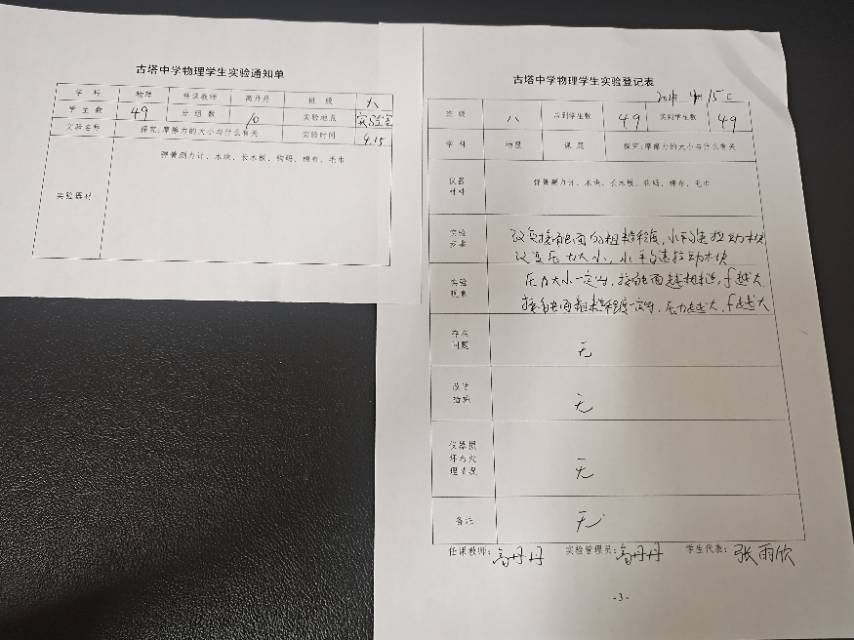 古塔中学物理学生实验通知单
学 科 物理 任课教师 高丹丹 班 级 八
学 生 数 49 分 组 数 10 实验地点 实验室
实验名称 探究:摩擦力的大小与什么有关 实验时间 4.15
实验器材 弹簧测力计、木块、长木板、钩码、棉布、毛巾
古塔中学物理学生实验登记表
班 级 八 应到学生数 49 实到学生数 49
学 科 物理 课 题 探究:摩擦力的大小与什么有关
仪器
材料 弹簧测力计、木块、长木板、钩码、棉布、毛巾
实验
步骤
改变接触面的粗糙程度,水平匀速拉动木块
改变压力大小,水平匀速拉动木块
实验
现象
压力大小一定时,接触面越粗糙,f越大
接触面粗糙程度一定时,压力越大,f越大
存在
问题 无
改进
措施 无
仪器损
坏与处
理情况 无
备注 无
任课教师:高丹丹 实验管理员:高丹丹 学生代表:张雨欣
-3-